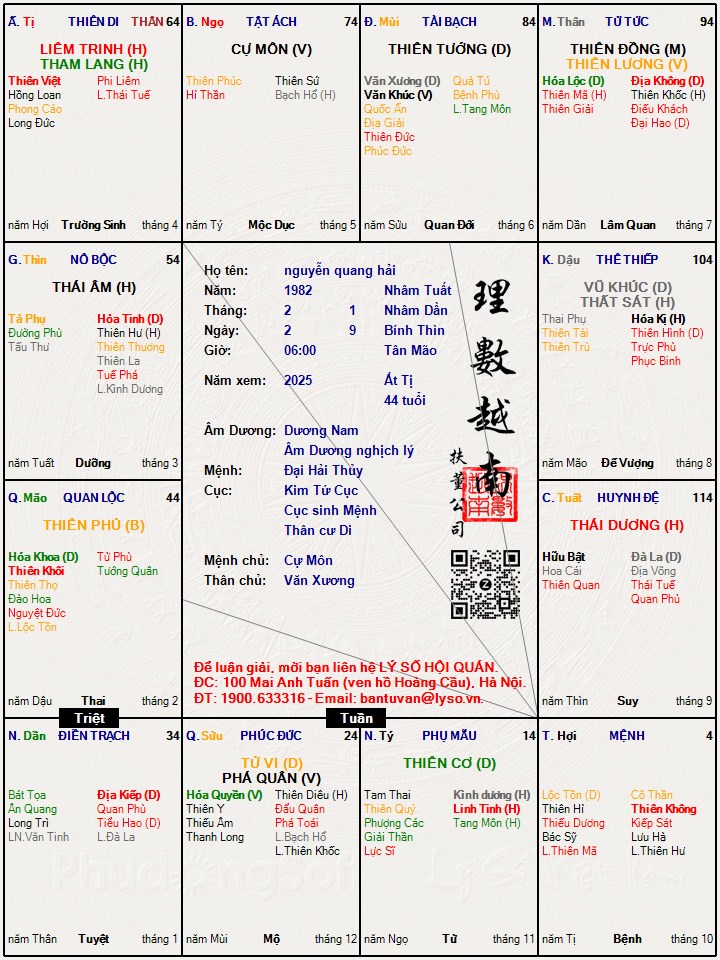 Ấ. Tị THIÊN DI THÂN 64
LIÊM TRINH (H)
THAM LANG (H)
Thiên Việt Phi Liêm
Hồng Loan L.Thái Tuế
Phong Cáo
Long Đức
năm Hợi Trường Sinh tháng 4
B. Ngọ TẬT ÁCH 74
CỰ MÔN (V)
Thiên Phúc Thiên Sứ
Hỉ Thần Bạch Hổ (H)
năm Tý Mộc Dục tháng 5
Đ. Mùi TÀI BẠCH 84
THIÊN TƯỚNG (D)
Văn Xương (D) Quả Tú
Văn Khúc (V) Bệnh Phù
Quốc Ấn L.Tang Môn
Địa Giải
Thiên Đức
Phúc Đức
năm Sửu Quan Đới tháng 6
M. Thân TỬ TỨC 94
THIÊN ĐỒNG (M)
THIÊN LƯƠNG (V)
Hóa Lộc (D) Địa Không (D)
Thiên Mã (H) Thiên Khốc (H)
Thiên Giải Điếu Khách
Đại Hao (D)
năm Dần Lâm Quan tháng 7
G. Thìn NÔ BỘC 54
THÁI ÂM (H)
Tả Phụ Hỏa Tinh (D)
Đường Phù Thiên Hư (H)
Tấu Thư Thiên Thương
Thiên La
Tuế Phá
L.Kình Dương
năm Tuất Dưỡng tháng 3
Họ tên: nguyễn quang hải
Năm: 1982 Nhâm Tuất
Tháng: 2 1 Nhâm Dần
Ngày: 2 9 Bính Thìn
Giờ: 06:00 Tân Mão
Năm xem: 2025 Ất Tị
44 tuổi
Âm Dương: Dương Nam
Âm Dương nghịch lý
Mệnh: Đại Hải Thủy
Cục: Kim Tứ Cục
Cục sinh Mệnh
Thân cư Di
Mệnh chủ: Cự Môn
Thân chủ: Văn Xương
理數越南
扶董公司
Để luận giải, mời bạn liên hệ LÝ SỐ HỘI QUÁN.
ĐC: 100 Mai Anh Tuấn (ven hồ Hoàng Cầu), Hà Nội.
ĐT: 1900.633316 - Email: bantuvan@lyso.vn.
K. Dậu THÊ THIẾP 104
VŨ KHÚC (D)
THẤT SÁT (H)
Thai Phụ Hóa Kị (H)
Thiên Tài Thiên Hình (D)
Thiên Trù Trực Phù
Phục Binh
năm Mão Đế Vượng tháng 8
Q. Mão QUAN LỘC 44
THIÊN PHỦ (B)
Hóa Khoa (D) Tử Phù
Thiên Khôi Tướng Quân
Thiên Thọ
Đào Hoa
Nguyệt Đức
L.Lộc Tồn
năm Dậu Thai tháng 2
C. Tuất HUYNH ĐỆ 114
THÁI DƯƠNG (H)
Hữu Bật Đà La (D)
Hoa Cái Địa Võng
Thiên Quan Thái Tuế
Quan Phủ
năm Thìn Suy tháng 9
Triệt
Tuần
N. Dần ĐIỀN TRẠCH 34
Bát Tọa Địa Kiếp (D)
Ân Quang Quan Phù
Long Trì Tiểu Hao (D)
LN.Văn Tinh L.Đà La
năm Thân Tuyệt tháng 1
Q. Sửu PHÚC ĐỨC 24
TỬ VI (D)
PHÁ QUÂN (V)
Hóa Quyền (V) Thiên Diêu (H)
Thiên Y Đẩu Quân
Thiếu Âm Phá Toái
Thanh Long L.Bạch Hổ
L.Thiên Khốc
năm Mùi Mộ tháng 12
N. Tý PHỤ MẪU 14
THIÊN CƠ (D)
Tam Thai Kình dương (H)
Thiên Quý Linh Tinh (H)
Phượng Các Tang Môn (H)
Giải Thần
Lực Sĩ
năm Ngọ Tử tháng 11
T. Hợi MỆNH 4
Lộc Tồn (D) Cô Thần
Thiên Hỉ Thiên Không
Thiếu Dương Kiếp Sát
Bác Sỹ Lưu Hà
L.Thiên Mã L.Thiên Hư
năm Tị Bệnh tháng 10